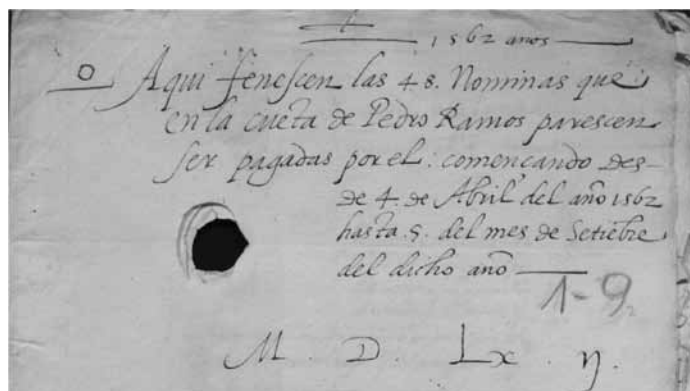 1562 anos
Aqui fenescen las 48. Nominas que
en la cueta de Pedro Ramos parescen
ser pagadas por el: començando des-
de 4. de Abril del año 1562
hasta .5. del mes de Setiebre
del dicho año
1-9
M. D. Lx. ij.